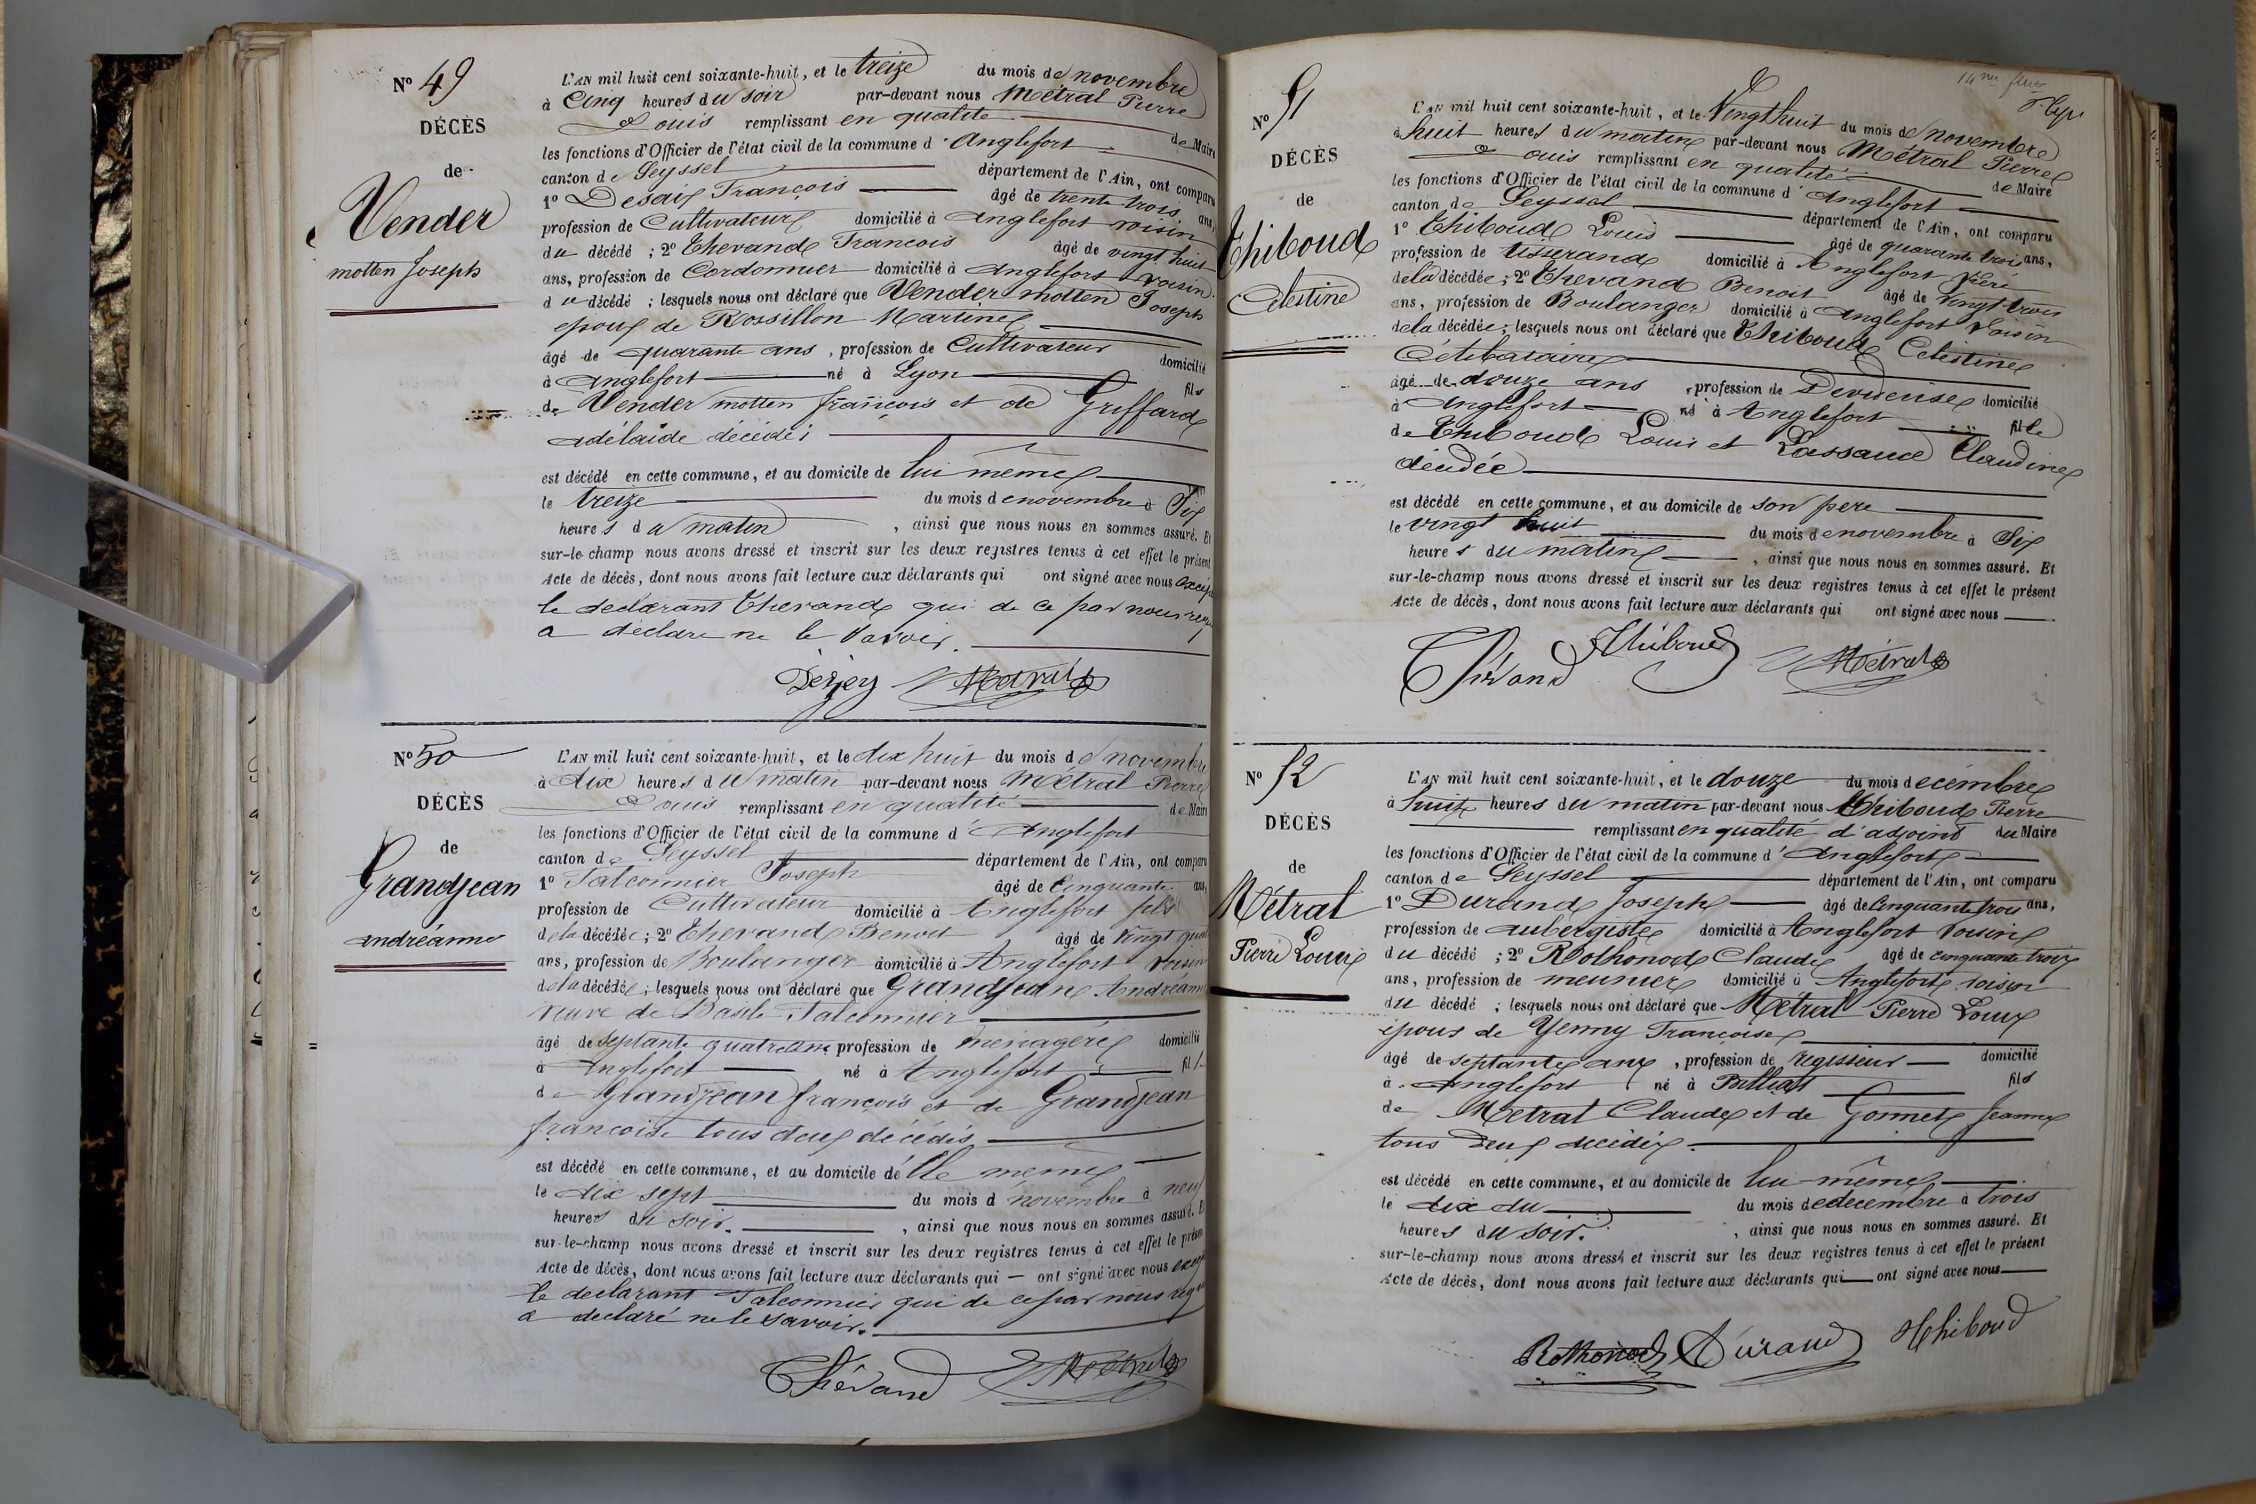 N° 49
DÉCÈS
de
Vender
motten Joseph
L'AN mil huit cent soixante-huit, et le treize du mois de novembre
à Cinq heures du soir par-devant nous Métral Pierre
Louis remplissant en qualité de Maire
les fonctions d'Officier de l'état civil de la commune d'Anglefort
canton de Seyssel département de l'Ain, ont comparu
1° Desaix François âgé de trente trois ans,
profession de Cultivateur domicilié à Anglefort voisin
du décédé ; 2° Thevand François âgé de vingt huit
ans, profession de Cordonnier domicilié à Anglefort voisin
du décédé ; lesquels nous ont déclaré que Vender motten Joseph
epoux de Rossillon Martine
âgé de quarante ans, profession de Cultivateur domicilié
à Anglefort né à Lyon fils
de Vender motten françois et de Griffard
adélaide décédés
est décédé en cette commune, et au domicile de lui même
le treize du mois de novembre à Six
heures du matin, ainsi que nous nous en sommes assuré. Et
sur-le-champ nous avons dressé et inscrit sur les deux registres tenus à cet effet le présent
Acte de décès, dont nous avons fait lecture aux déclarants qui ont signé avec nous
le declarant Thevand qui de ce par nous
a déclaré ne le savoir.
Métral
N° 50
DÉCÈS
de
Grandjean
andréanne
L'AN mil huit cent soixante-huit, et le dix huit du mois de novembre
à dix heures du matin par-devant nous Métral Pierre
Louis remplissant en qualité de Maire
les fonctions d'Officier de l'état civil de la commune d'Anglefort
canton de Seyssel département de l'Ain, ont comparu
1° Falconnier Joseph âgé de Cinquante ans,
profession de Cultivateur domicilié à Anglefort fils
de la décédée ; 2° Thevand Benoit âgé de vingt
ans, profession de Boulanger domicilié à Anglefort voisin
de la décédée ; lesquels nous ont déclaré que Grandjean Andréanne
veuve de Basile Falconnier
âgé de septante quatre ans profession de ménagère domicilié
à Anglefort né à Anglefort fille
de Grandjean françois et de Grandjean
françoise tous deux décédés
est décédé en cette commune, et au domicile d'elle même
le dix sept du mois de novembre à neuf
heures du soir, ainsi que nous nous en sommes assuré. Et
sur-le-champ nous avons dressé et inscrit sur les deux registres tenus à cet effet le présent
Acte de décès, dont nous avons fait lecture aux déclarants qui — ont signé avec nous
le declarant Falconnier qui de ce par nous
a declaré ne le savoir.
Thévand Métral
14me
N° 51
DÉCÈS
de
Thiboud
Celestine
L'AN mil huit cent soixante-huit, et le Vingt huit du mois de novembre
à huit heures du matin par-devant nous Métral Pierre
Louis remplissant en qualité de Maire
les fonctions d'Officier de l'état civil de la commune d'Anglefort
canton de Seyssel département de l'Ain, ont comparu
1° Thiboud Louis âgé de quarante trois ans,
profession de tisserand domicilié à Anglefort Père
de la décédée ; 2° Thevand Benoit âgé de vingt trois
ans, profession de Boulanger domicilié à Anglefort Voisin
de la décédée ; lesquels nous ont déclaré que Thiboud Celestine
Célibataire
âgé de douze ans, profession de Devideuse domicilié
à Anglefort né à Anglefort fille
de Thiboud Louis et Lassauce Claudine
décédée
est décédé en cette commune, et au domicile de son père
le vingt huit du mois de novembre à Six
heures du matin, ainsi que nous nous en sommes assuré. Et
sur-le-champ nous avons dressé et inscrit sur les deux registres tenus à cet effet le présent
Acte de décès, dont nous avons fait lecture aux déclarants qui ont signé avec nous
Thévand Thiboud Métral
N° 52
DÉCÈS
de
Métral
Pierre Louis
L'AN mil huit cent soixante-huit, et le douze du mois decembre
à huit heures du matin par-devant nous Thiboud Pierre
remplissant en qualité d'adjoint du Maire
les fonctions d'Officier de l'état civil de la commune d'Anglefort
canton de Seyssel département de l'Ain, ont comparu
1° Durand Joseph âgé de Cinquante trois ans,
profession de aubergiste domicilié à Anglefort voisin
du décédé ; 2° Rothonod Claude âgé de cinquante trois
ans, profession de meunier domicilié à Anglefort voisin
du décédé ; lesquels nous ont déclaré que Métral Pierre Louis
époux de Yenny Françoise
âgé de septante ans, profession de regisseur domicilié
à Anglefort né à Billiat fils
de Métral Claude et de Gonnet Jeanne
tous deux décédés.
est décédé en cette commune, et au domicile de lui même
le dix du du mois de decembre à trois
heures du soir. , ainsi que nous nous en sommes assuré. Et
sur-le-champ nous avons dressé et inscrit sur les deux registres tenus à cet effet le présent
Acte de décès, dont nous avons fait lecture aux déclarants qui — ont signé avec nous —
Rothonod Durand Thiboud